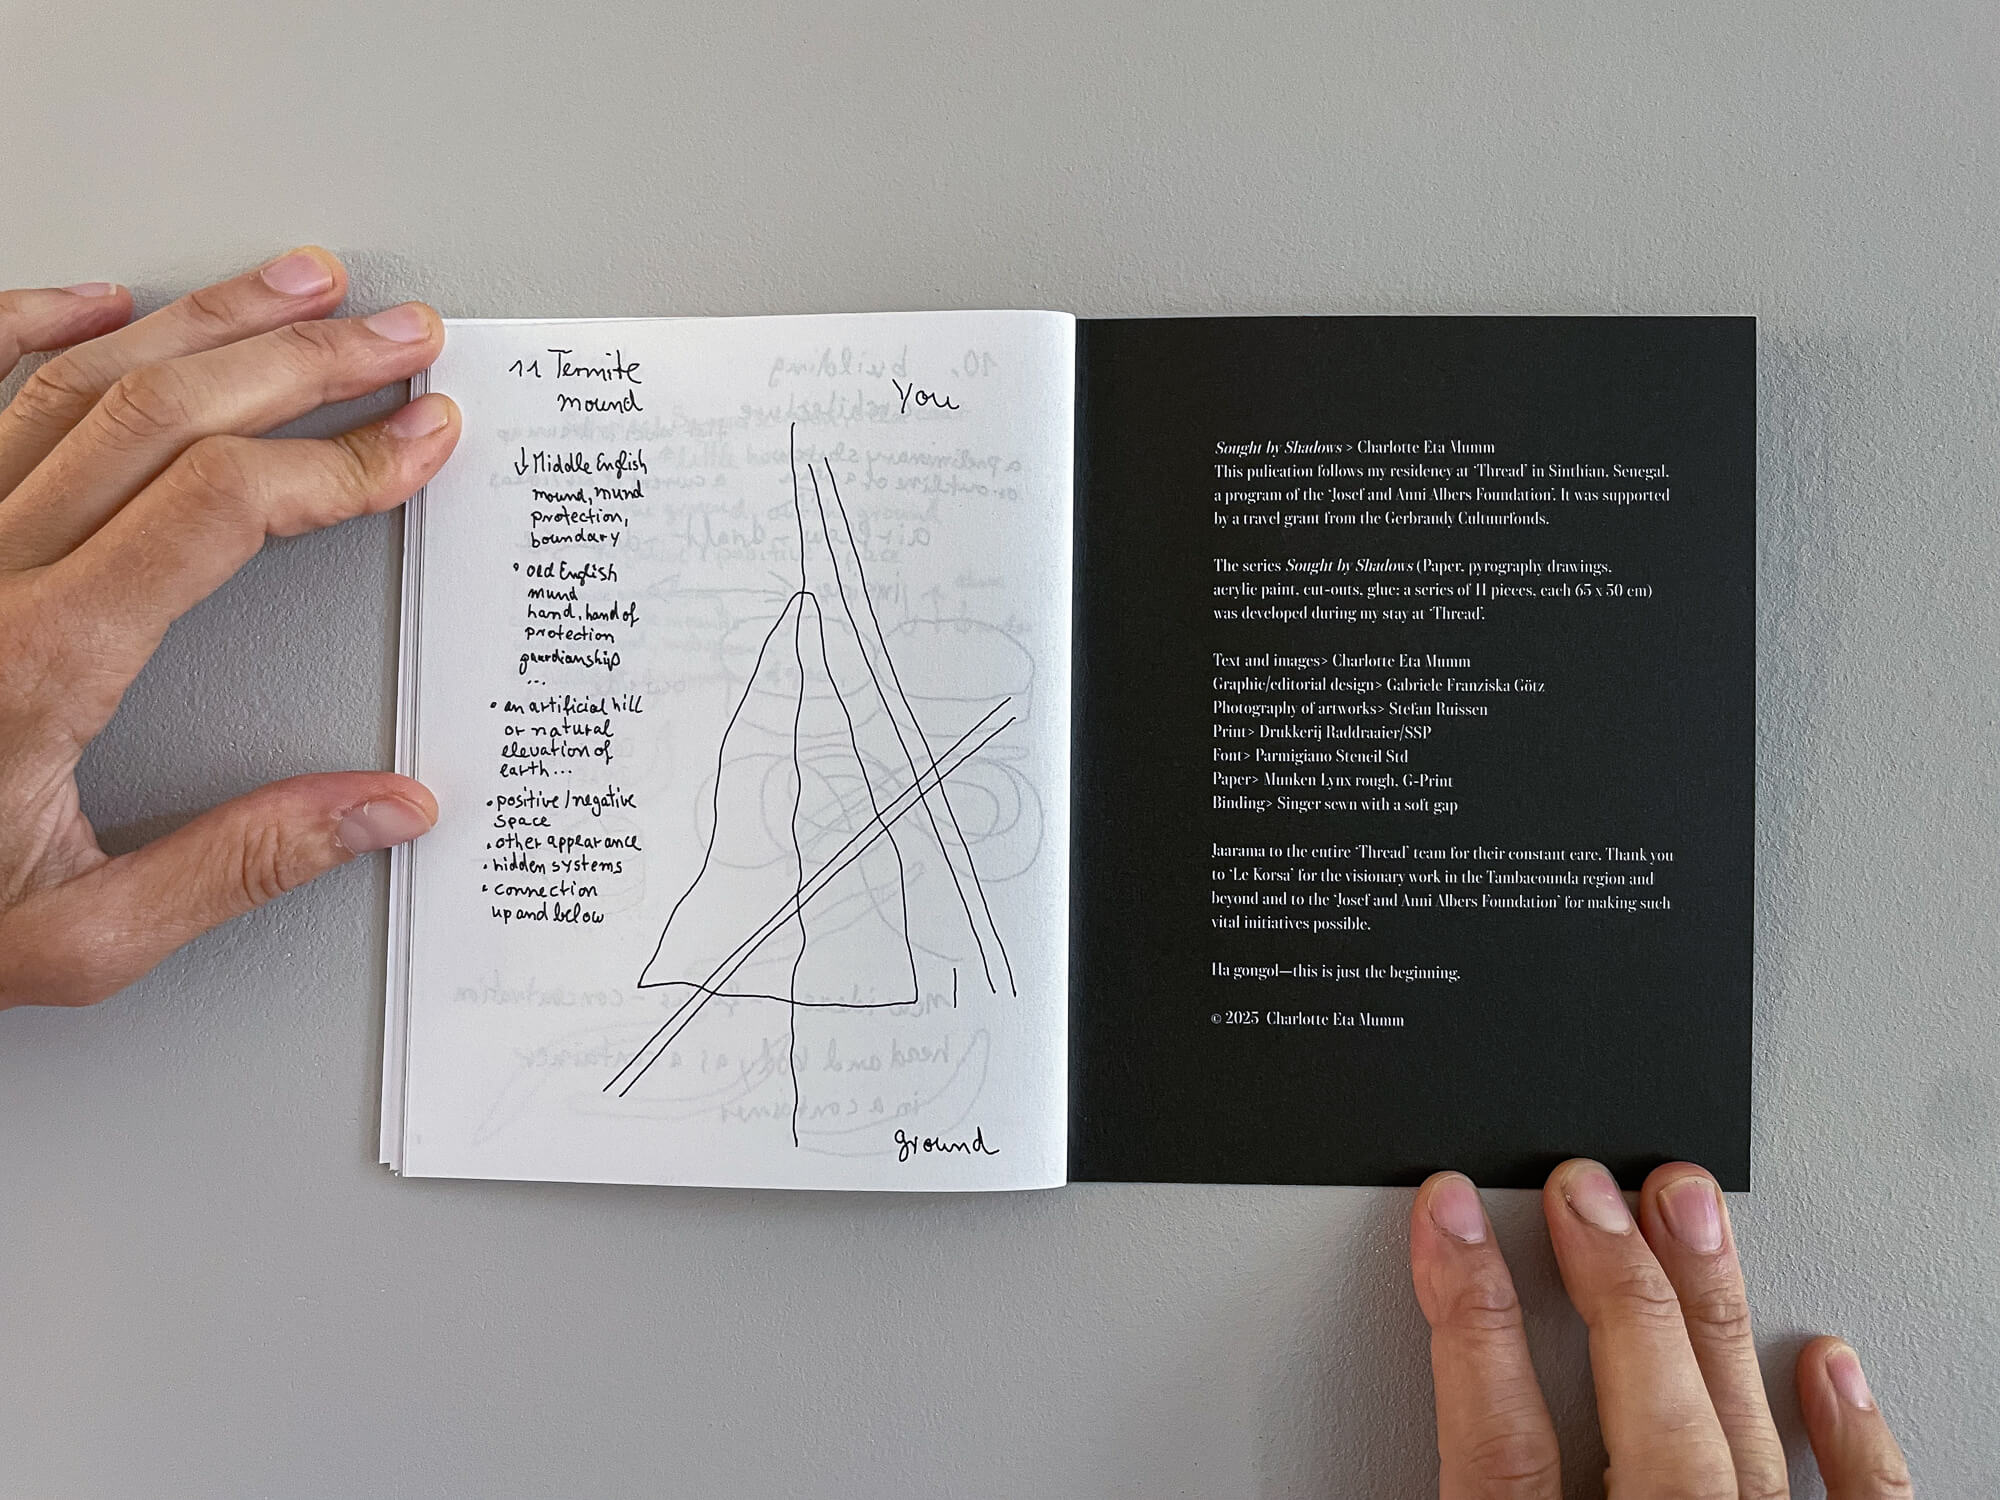 11 Termite
mound
↓ Middle English
mound, mund
protection,
boundary
• old English
mund
hand, hand of
protection
guardianship
...
• an artificial hill
or natural
elevation of
earth...
• positive/negative
space
• other appearance
• hidden systems
• connection
up and below
You
I
ground
Sought by Shadows > Charlotte Eta Mumm
This pulication follows my residency at ‘Thread’ in Sinthian, Senegal,
a program of the ‘Josef and Anni Albers Foundation’. It was supported
by a travel grant from the Gerbrandy Cultuurfonds.
The series Sought by Shadows (Paper, pyrography drawings,
acrylic paint, cut-outs, glue; a series of 11 pieces, each 65 x 50 cm)
was developed during my stay at ‘Thread’.
Text and images> Charlotte Eta Mumm
Graphic/editorial design> Gabriele Franziska Götz
Photography of artworks> Stefan Ruissen
Print> Drukkerij Raddraaier/SSP
Font> Parmigiano Stencil Std
Paper> Munken Lynx rough, G-Print
Binding> Singer sewn with a soft gap
Jaarama to the entire ‘Thread’ team for their constant care. Thank you
to ‘Le Korsa’ for the visionary work in the Tambacounda region and
beyond and to the ‘Josef and Anni Albers Foundation’ for making such
vital initiatives possible.
Ha gongol—this is just the beginning.
© 2025 Charlotte Eta Mumm